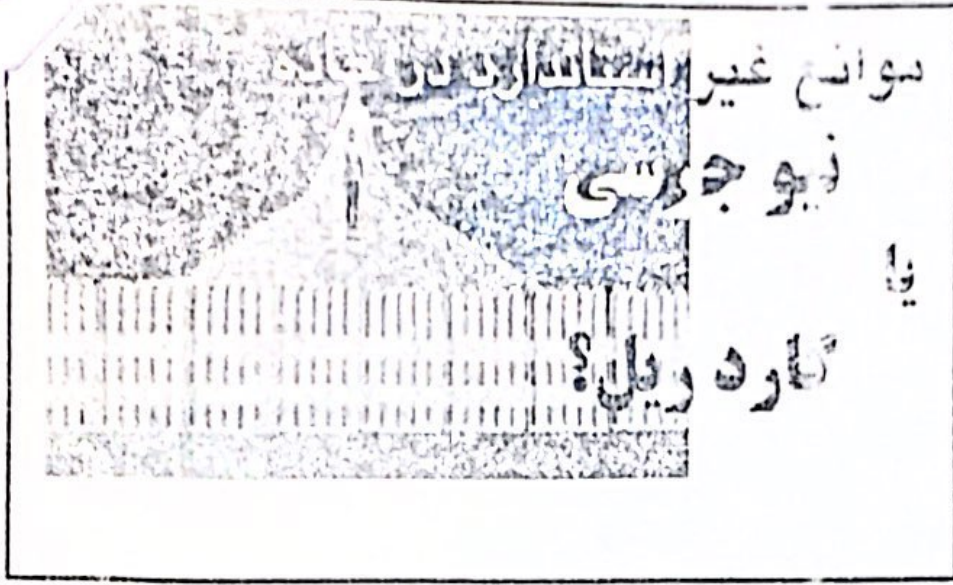 موانع غیر استاندارد در جاده
نیو جرسی
یا
گارد ریل؟